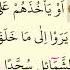 أَوْ يَأْخُذَهُمْ عَلَ
يَرَوْا إِلَى مَا خَلَقَ
لشَّمَائِلِ سُجَّدًا